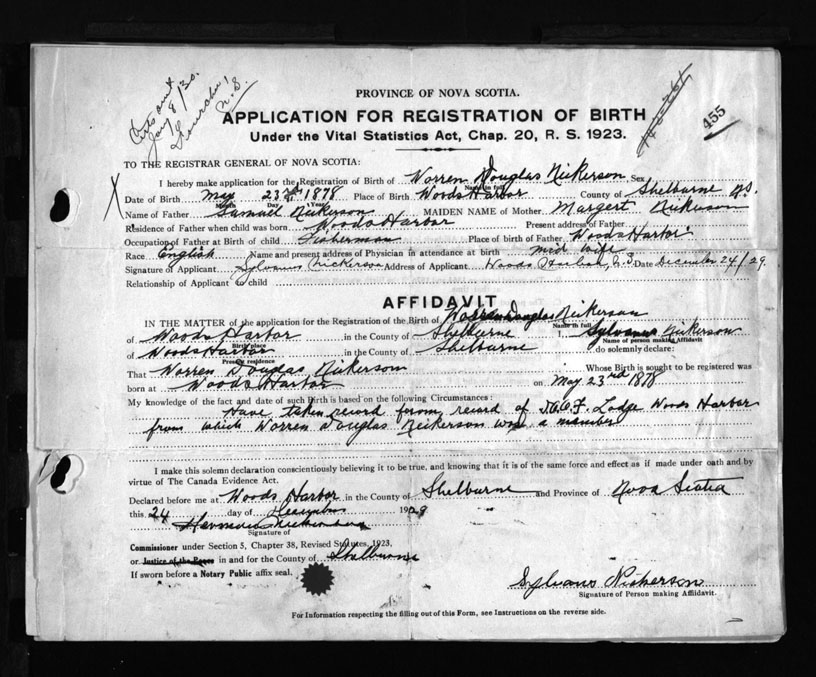 Certs sent
Jan 8/30.
N.S.
455
PROVINCE OF NOVA SCOTIA.
APPLICATION FOR REGISTRATION OF BIRTH
Under the Vital Statistics Act, Chap. 20, R. S. 1923.
TO THE REGISTRAR GENERAL OF NOVA SCOTIA:
I hereby make application for the Registration of Birth of Warren Douglas Nickerson Sex
Name in full
X Date of Birth May 23rd 1878 Place of Birth Woods Harbor County of Shelburne N.S.
Month Day Year
Name of Father Samuel Nickerson MAIDEN NAME of Mother Margert Nickerson
Residence of Father when child was born Woods Harbor Present address of Father
Occupation of Father at Birth of child Fisherman Place of birth of Father Woods Harbor
Race English Name and present address of Physician in attendance at birth mid wife
Signature of Applicant Sylvanus Nickerson Address of Applicant Woods Harbor, N.S. Date December 24/29.
Relationship of Applicant to child
AFFIDAVIT
IN THE MATTER of the application for the Registration of the Birth of Warren Douglas Nickerson
Name in full
of Woods Harbor in the County of Shelburne I, Sylvanus Nickerson
Birth place Name of person making Affidavit
of Woods Harbor in the County of Shelburne do solemnly declare:
Present residence
That Warren Douglas Nickerson Whose Birth is sought to be registered was
born at Woods Harbor on May 23rd 1878
My knowledge of the fact and date of such Birth is based on the following Circumstances:
Have taken record from record of I.O.O.F. Lodge Woods Harbor
from which Warren Douglas Neickerson was a member
I make this solemn declaration conscientiously believing it to be true, and knowing that it is of the same force and effect as if made under oath and by
virtue of The Canada Evidence Act.
Declared before me at Woods Harbor in the County of Shelburne and Province of Nova Scotia
this 24 day of December 1929
Herman Nickerson
Signature of
Commissioner under Section 5, Chapter 38, Revised Statutes, 1923,
or Justice of the Peace in and for the County of Shelburne
If sworn before a Notary Public affix seal.
Sylvanus Nickerson
Signature of Person making Affidavit.
For Information respecting the filling out of this Form, see Instructions on the reverse side.